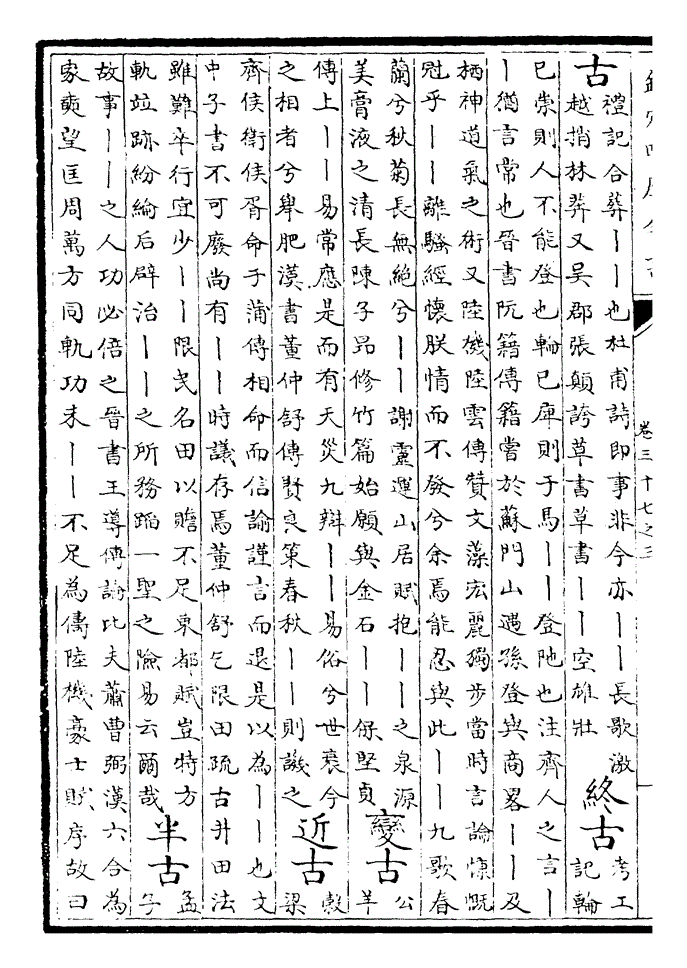 古
禮記合葬丨丨也杜甫詩即事非今亦丨丨長歌激
越捎林莽又吳郡張顛誇草書草書丨丨空雄壯
終古
考工
記輪
已崇則人不能登也輪已庳則于馬丨丨登阤也注齊人之言丨
丨猶言常也晉書阮籍傳籍嘗於蘇門山遇孫登與商畧丨丨及
栖神道氣之術又陸機陸雲傳贊文藻宏麗獨步當時言論慷慨
冠乎丨丨離騷經懷朕情而不發兮余焉能忍與此丨丨九歌春
蘭兮秋菊長無絕兮丨丨謝靈運山居賦抱丨丨之泉源
美膏液之清長陳子昂修竹篇始願與金石丨丨保堅貞
變古
公
羊
傳上丨丨易常應是而有天災九辯丨丨易俗兮世衰今
之相者兮舉肥漢書董仲舒傳賢良策春秋丨丨則譏之
近古
榖
梁
齊侯衛侯胥命于蒲傳相命而信諭謹言而退是以為丨丨也文
中子書不可廢尚有丨丨時議存焉董仲舒乞限田疏古井田法
雖難卒行宜少丨丨限民名田以贍不足東都賦豈特方
軌竝跡紛綸后辟治丨丨之所務蹈一聖之險易云爾哉
半古
孟
子
故事丨丨之人功必倍之晉書王導傳論比夫蕭曹弼漢六合為
家奭望匡周萬方同軌功未丨丨不足為儔陸機豪士賦序故曰
卷三十七之三
一